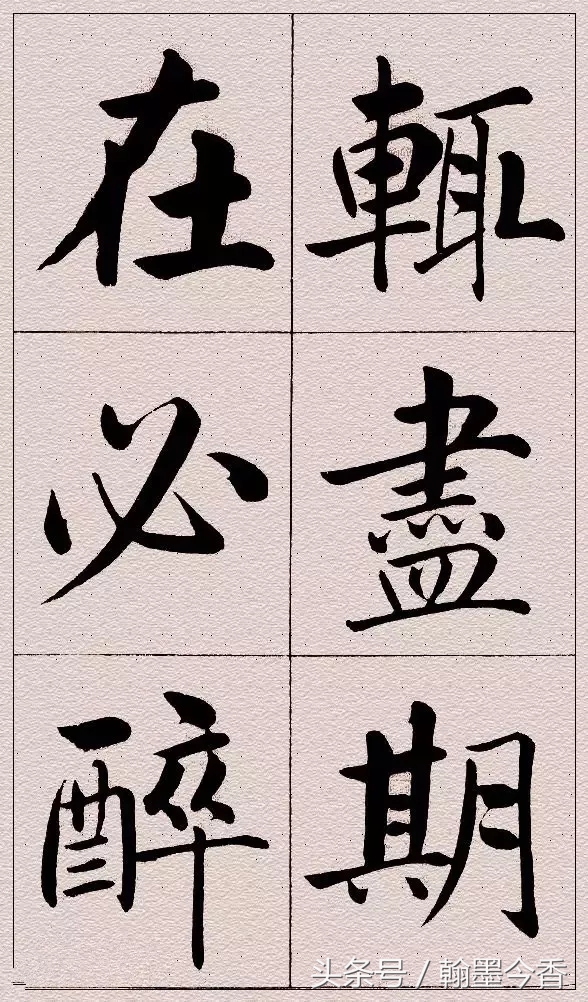 輒盡期
在必醉
头条号 / 翰墨今香